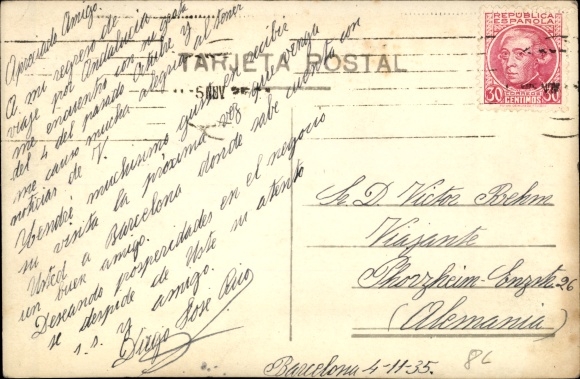 TARJETA POSTAL
REPÚBLICA
ESPAÑOLA
30 CORREOS 30
CENTIMOS
5 NOV
Apreciado Amigo.
A mi regreso de
viaje por Andalucia
me encuentro con su grata
del 4 del pasado Octubre y
me causo mucha alegria al tener
noticias de V.
Tendré muchisimo gusto en recibir
su visita la próxima vez que venga
Usted a Barcelona donde sabe cuenta con
un buen amigo.
Deseando prosperidades en el negocio
se despide de Uste su atento
s.s. y amigo.
Jose Rico
Sr. D. Victor Brehm
Viajante
Phorzheim-Enzstr 26
(Alemania)
Barcelona 4-11-35.
86